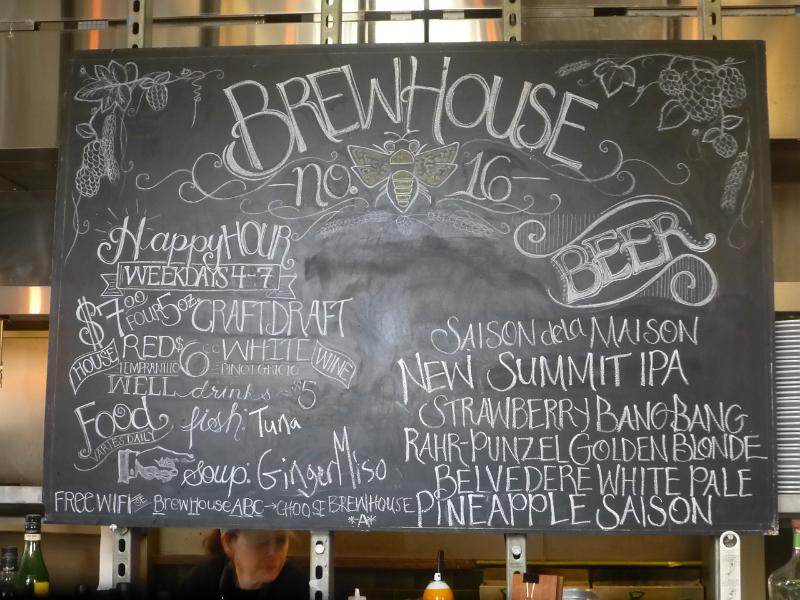 BREWHOUSE
no. 16
HappyHOUR
WEEKDAYS 4-7
$7.00 FOUR 5oz. CRAFT DRAFT
HOUSE RED $6.00 WHITE WINE
TEMPRANILLO PINOT GRIGIO
WELL drinks $5
Food fish: Tuna
VARIES DAILY
soup: Ginger Miso
FREE WIFI BREWHOUSE ABC → CHOOSE BREWHOUSE
*A*
BEER
SAISON de la MAISON
NEW SUMMIT IPA
STRAWBERRY BANG BANG
RAHR-PUNZEL GOLDEN BLONDE
BELVEDERE WHITE PALE
PINEAPPLE SAISON